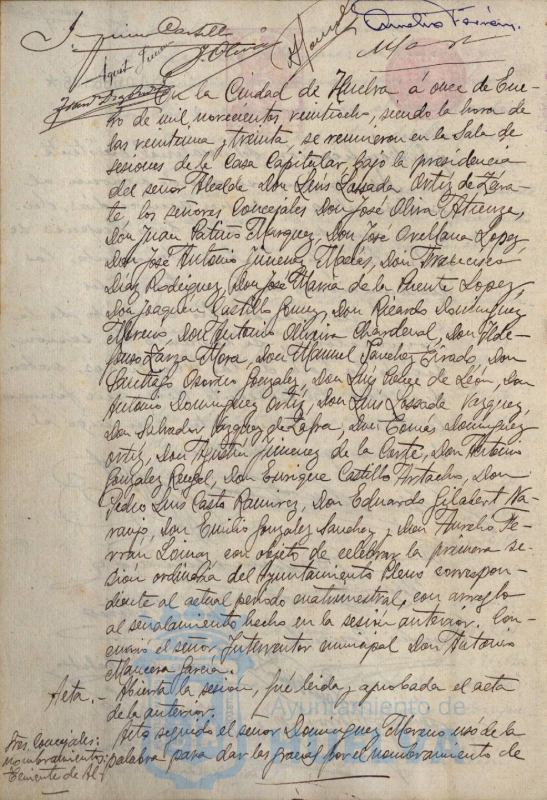 Aurelio Ferrán
En la Ciudad de Huelva á once de Ene-
ro de mil novecientos veintiocho, siendo la hora de
las veintiuna y treinta, se reunieron en la Sala de
sesiones de la Casa Capitular, bajo la presidencia
del señor Alcalde Don Luis Lossada Ortiz de Zára-
te, los señores Concejales Don José Oliva Atienza,
Don Juan Patiño Marquez, Don José Orellana Lopez,
Don José Antonio Jimenez, Don Francisco
Diaz Rodriguez, Don José Maria de la Puente Lopez,
Don Joaquin Castillo Gomez, Don Ricardo Dominguez
Moreno, Don Antonio Oliveira Chardenal, Don Ilde-
fonso Zarza Mora, Don Manuel Sanchez Tirado, Don
Santiago Osorno Gonzalez, Don Luis Ponce de León, Don
Antonio Dominguez Ortiz, Don Luis Lossada Vazquez,
Don Salvador Vazquez de Zafra, Don Tomas Dominguez
Ortiz, Don Agustin Jimenez de la Corte, Don Antonio
Gonzalez Rangel, Don Enrique Castillo Antacho, Don
Pedro Luis Casto Ramirez, Don Eduardo Gilabert Na-
ranjo, Don Emilio Gonzalez Sanchez y Don Aurelio Fe-
rran con objeto de celebrar la primera se-
sión ordinaria del Ayuntamiento Pleno correspon-
diente al actual periodo cuatrimestral, con arreglo
al señalamiento hecho en la sesión anterior. Con-
currió el señor Interventor municipal Don Antonio
Mancera Garcia.
Acta.- Abierta la sesión, fue leida y aprobada el acta
de la anterior.
Sres. Concejales:
nombramientos:
Teniente de Al-
Acto seguido el señor Dominguez Moreno usó de la
palabra para dar las gracias por el nombramiento de
Ayuntamiento de